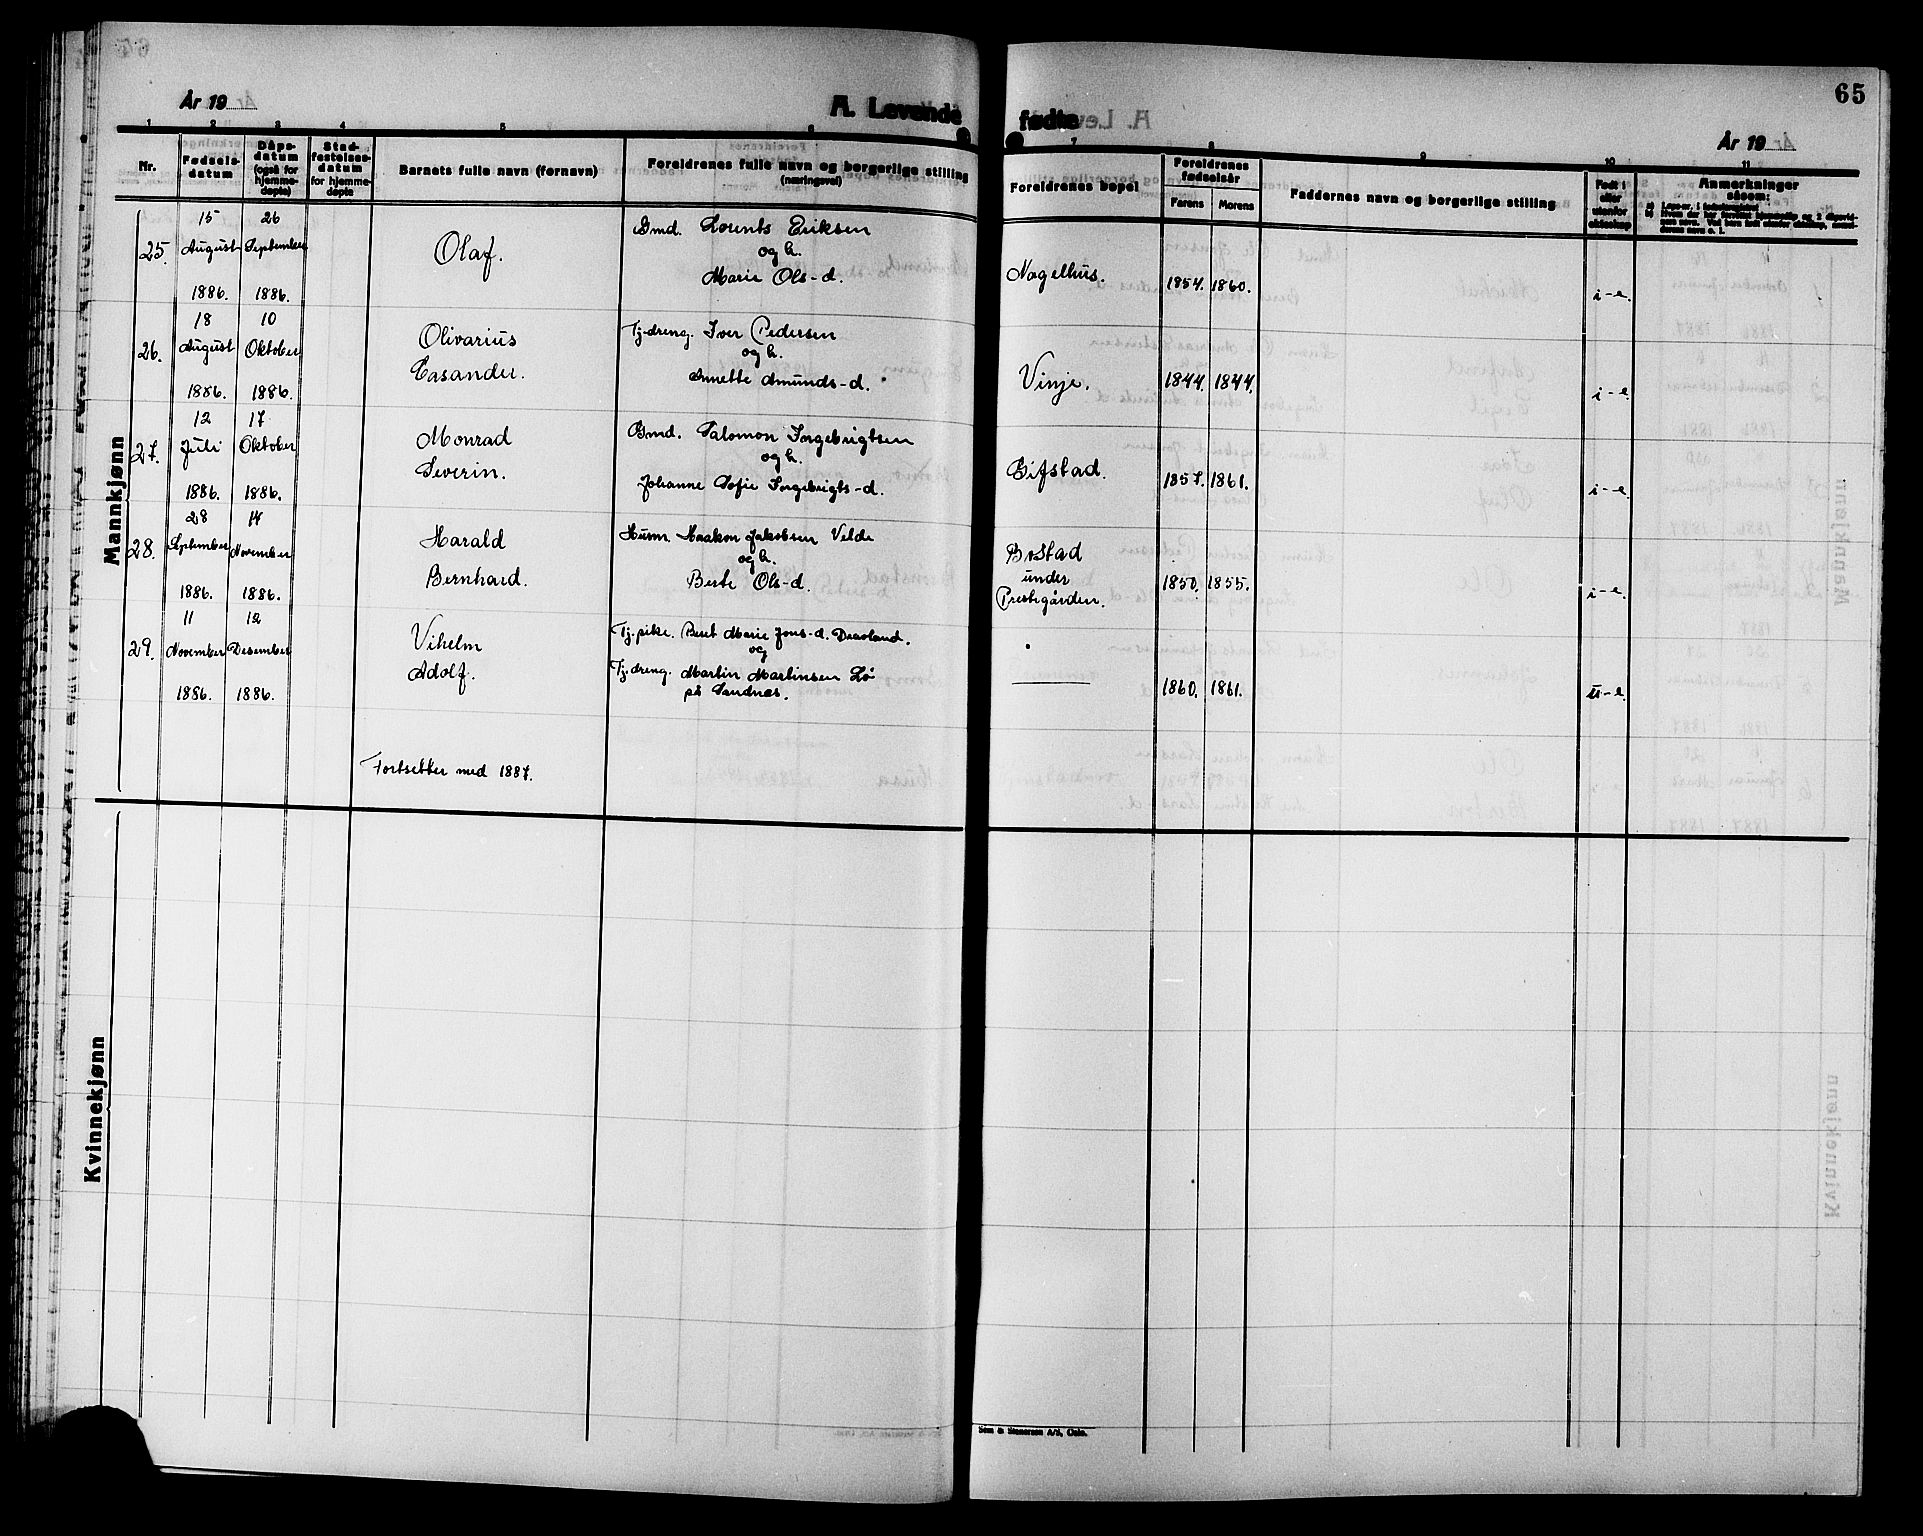 65
År 19
A. Levende fødte
År 19
1 2 3 4 5 6 7 8 9 10 11
Nr.
Fødsels-
datum
Dåps-
datum
(også for
hjemme-
døpte)
Stad-
festelses-
datum
for hjemme-
døpte
Barnets fulle navn (fornavn)
Foreldrenes fulle navn og borgerlige stilling
(næringsvei)
Foreldrenes bopel
Foreldrenes
fødselsår
Farens
Morens
Faddernes navn og borgerlige stilling
Født i
eller
utenfor
ekteskap
Anmerkninger
såsom:
Mannkjønn
25.
15
August
1886.
26
September
1886.
Olaf.
Gmd. Lorents Eriksen
og h.
Marie Ols-d.
Nagelhus.
1854.
1860.
i-e.
26.
18
August
1886.
10
Oktober
1886.
Olivarius
Casander.
Tj-dreng. Iver Pedersen
og h.
Annette Amunds-d.
Vinje.
1844.
1844.
i-e.
27.
12
Juli
1886.
17
Oktober
1886.
Monrad
Severin.
Gmd. Salomon Ingebrigtsen
og h.
Johanne Sofie Ingebrigts-d.
Gifstad.
1857.
1861.
i-e.
28.
28
September
1886.
14
November
1886.
Harald
Bernhard.
Husm. Haakon Jakobsen Velde
og h.
Berte Ols-d.
Bostad
under
Prestegården.
1850.
1855.
i-e.
29.
11
November
1886.
12
Desember
1886.
Vihelm
Adolf.
Tj.pike. Beret Marie Jons-d. Dravland.
og
Tj-dreng. Martin Martinsen Lø
på Sandnes.
1860.
1861.
u-e.
Fortsetter med 1887.
Kvinnekjønn
Sem & Stenersen A/S, Oslo.